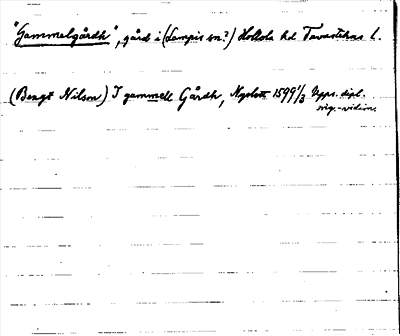 "Gammelgårdh", gård i (Lampis sn?) Hollola hd Tavastehus l.
(Bengt Nilson) I gammell Gårdh, Nyslott 1599 1/3 Upps. dipl.
orig.-vidim.